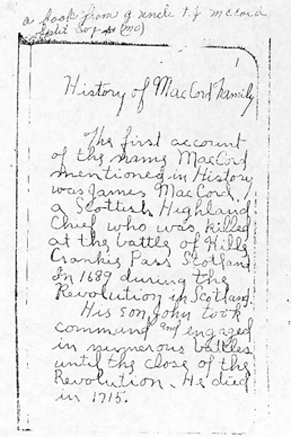 a book from g uncle t. J McCord
Split Log (Mo)
1
History of MacCord Family
The first account
of the name MacCord
mentioned in History
was James MacCord,
a Scottish Highland
Chief who was killed
at the battle of Killi
Crankie Pass Scotland
In 1689 during the
Revolution in Scotland.
His son John took
command and engaged
in numerous battles
until the close of the
Revolution. He died
in 1715.